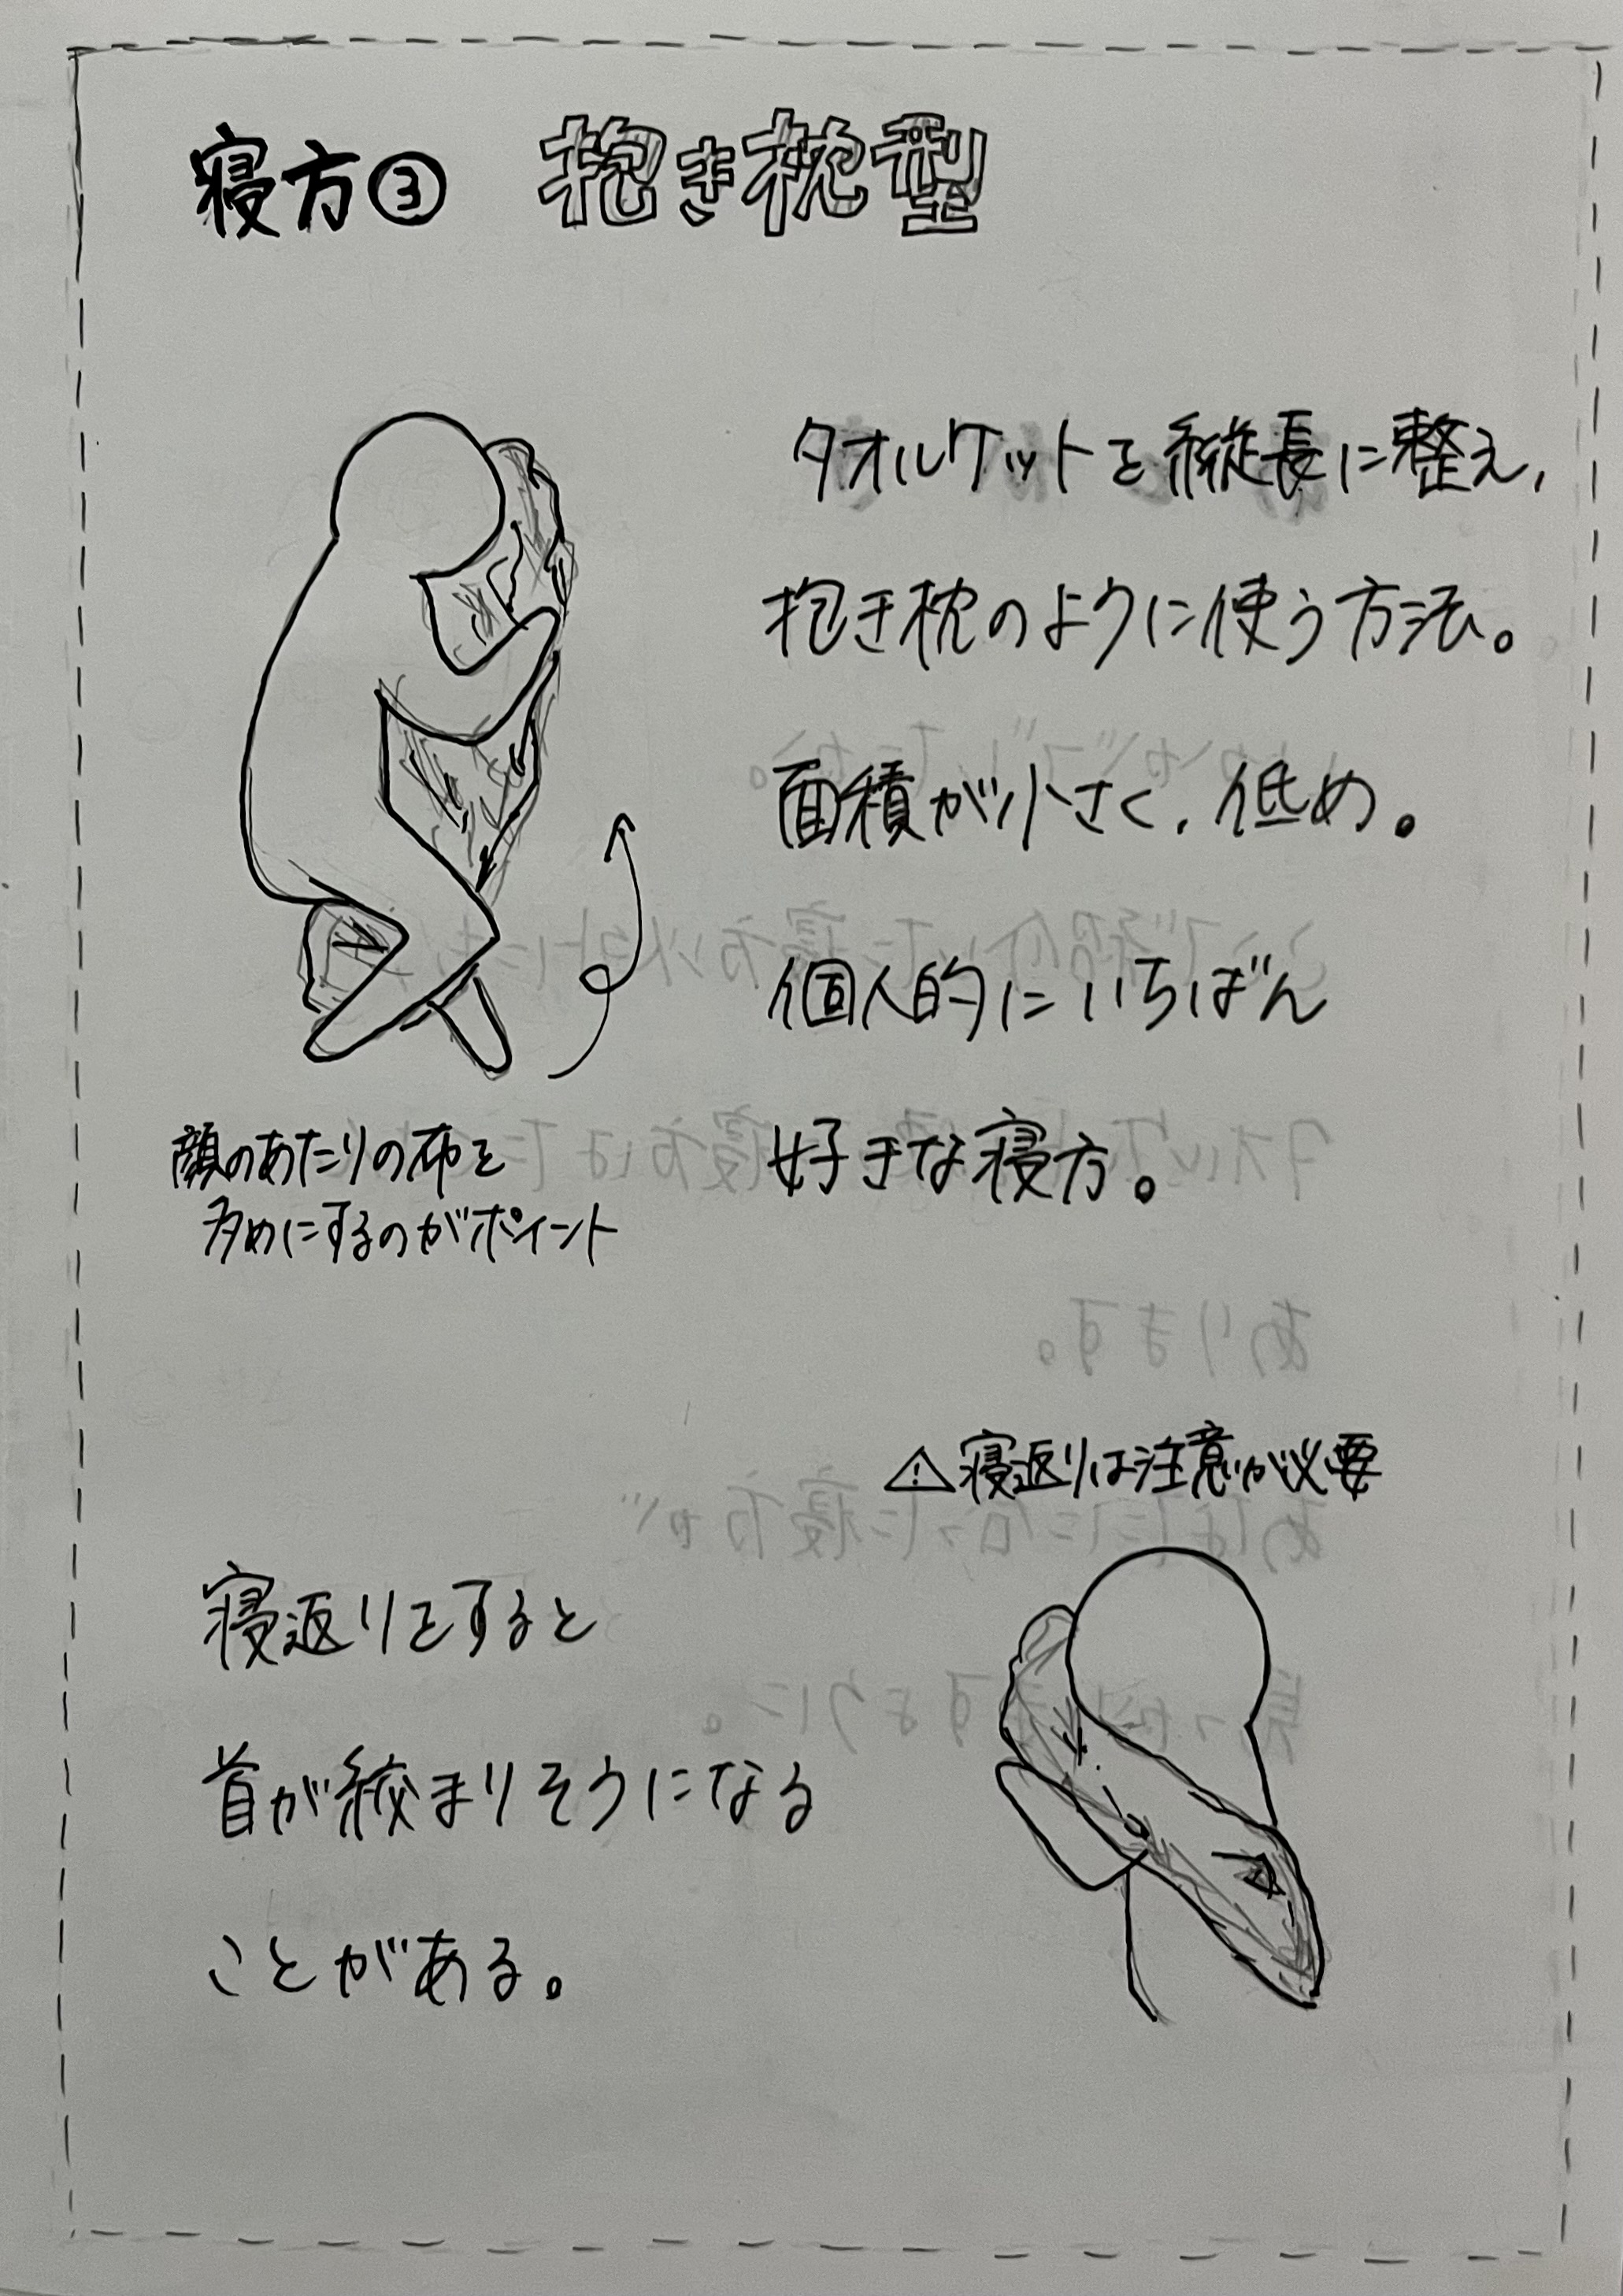 寝方③ 抱き枕型
タオルケットを縦長に整え,
抱き枕のように使う方法。
面積が小さく、低め。
個人的にいちばん
好きな寝方。
顔のあたりの布を
多めにするのがポイント
⚠寝返りは注意が必要
寝返りをすると
首が絞まりそうになる
ことがある。
あります。